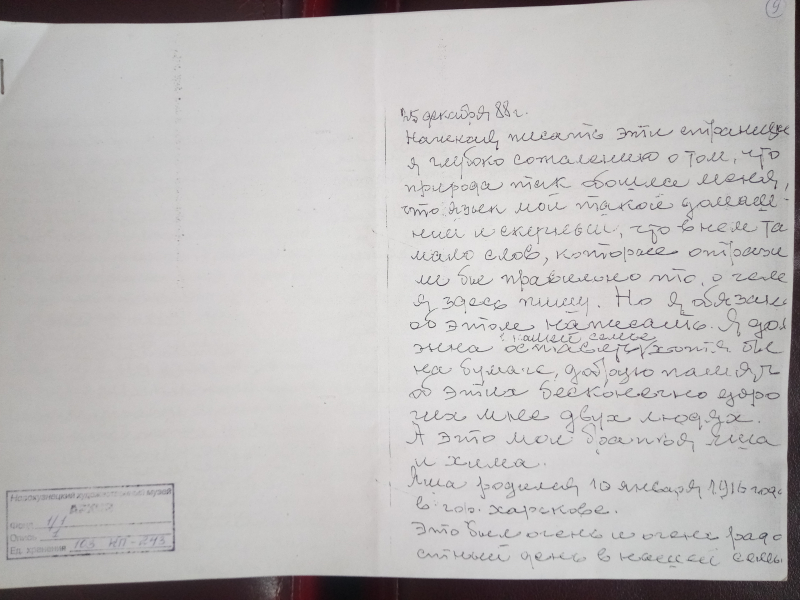 9
25 декабря 88 г.
Начиная писать эти страницы
я глубоко сожалению о том, что
природа так обошла меня,
что язык мой такой домаш-
ний и скудный, что в нем та
мало слов, которые отрази
ли бы правильно то, о чем
я здесь пишу. Но я обязан
об этом написать. Я дол
нашей семье
жна оставить хотя бы
на бумаге, добрую память
об этих бесконечно доро
гих мне двух людях.
А это мои братья Яша
и Хима.
Яша родился 10 января 1916 года
в гор. Харькове.
Это был очень и очень радо
стный день в нашей семье
Новокузнецкий художественный музей
АРХИВ
Фонд 41
Опись 1
Ед. хранения 103 КП-243